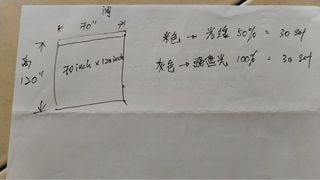 70"
高
120"
70 inch x 120 inch
米色 → 光線 50% = 30 set
灰色 → 遮光 100% = 30 set